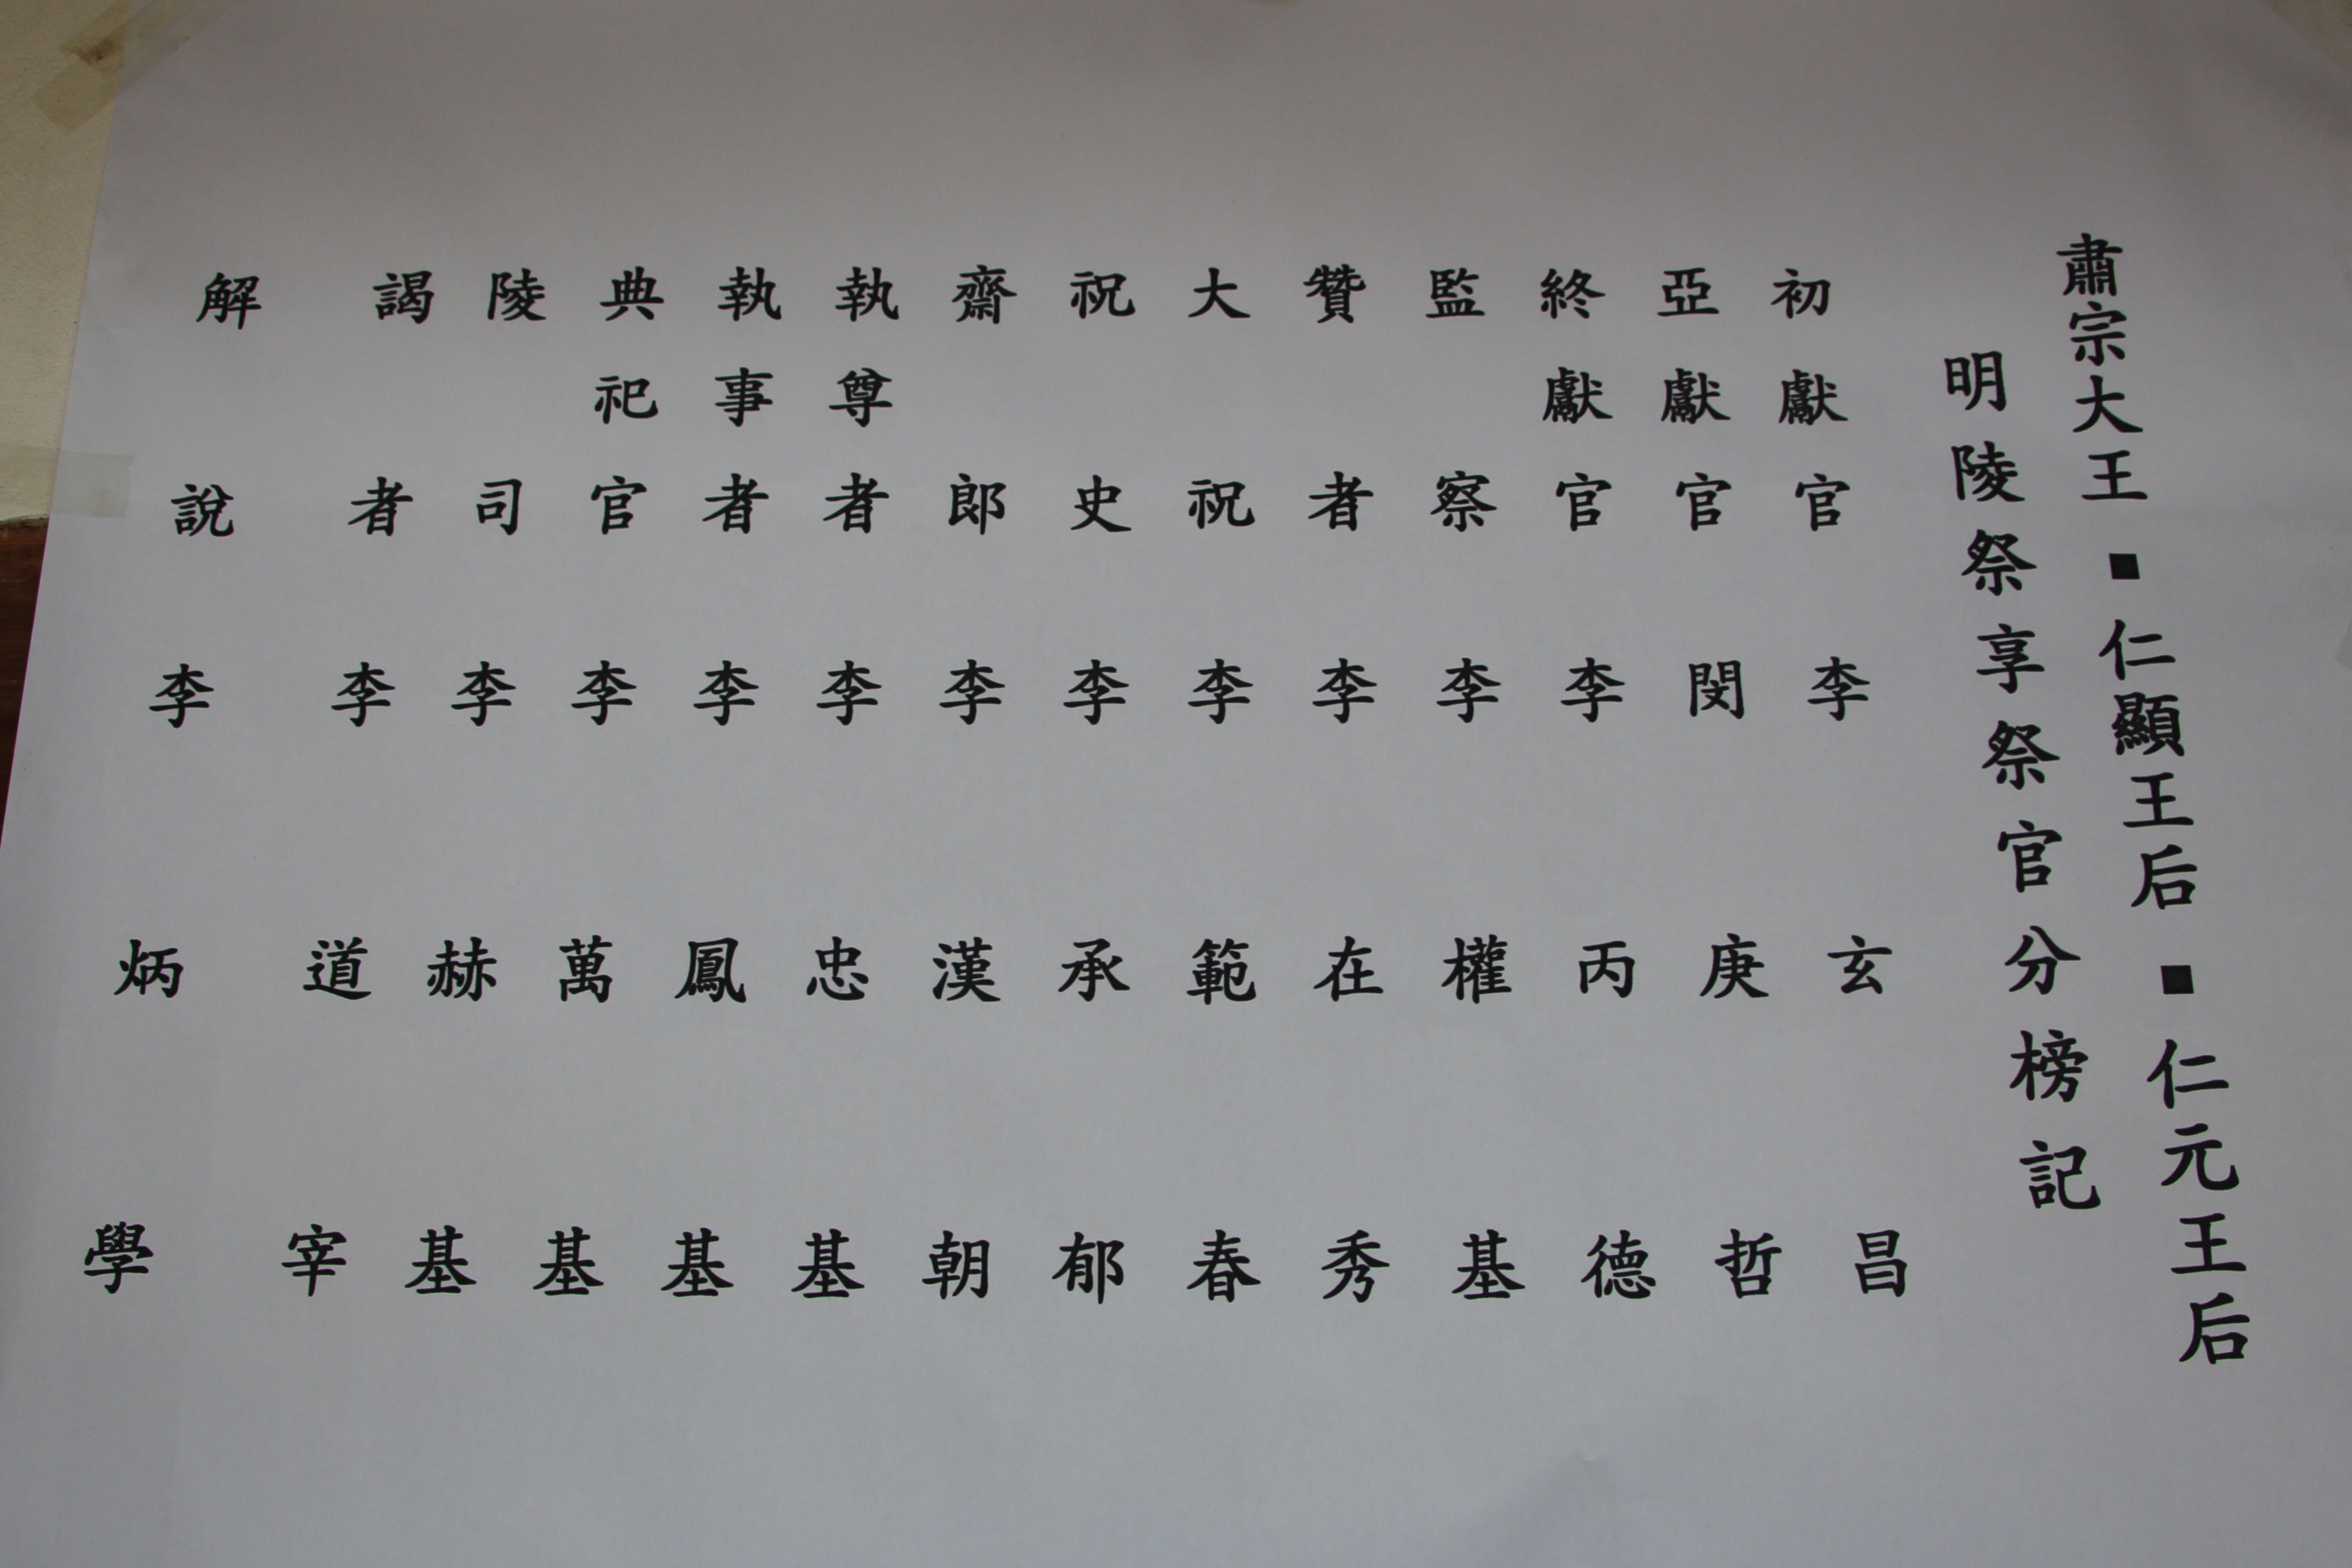 肅宗大王■仁顯王后■仁元王后
明陵祭享祭官分榜記
初獻官李玄昌
亞獻官閔庚哲
終獻官李丙德
監察李權基
贊者李在秀
大祝李範春
祝史李承郁
齋郎李漢朝
執尊者李忠基
執事者李鳳基
典祀官李萬基
陵司李赫基
謁者李道宰
解說李炳學